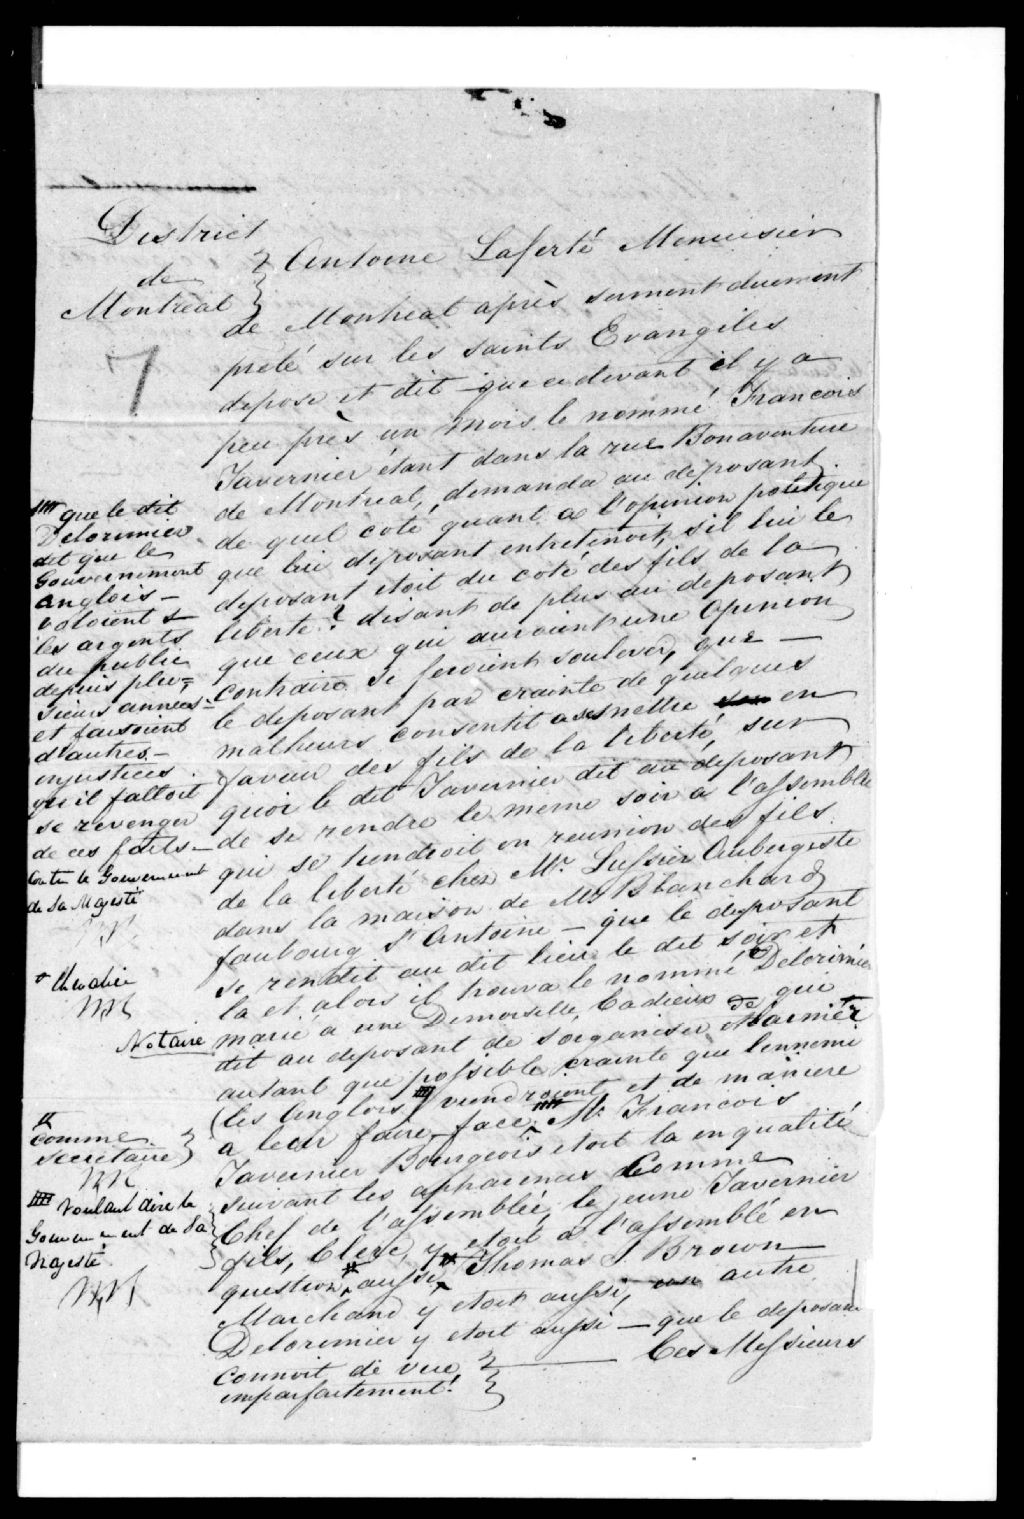 District
de
Montréal
7
Antoine Laferté Menuisier
de Montreal après serment duement
preté sur les saints Evangiles
depose et dit que ci devant il y a
peu près un mois le nommé François
Tavernier étant dans la rue Bonaventure
de Montreal, demanda au deposant
de quel coté quant a l'opinion politique
que lui deposant entretenoit, s'il lui le
deposant etoit du coté des fils de la
liberte? disant de plus au deposant
que ceux qui auroient une Opinion
contraire se feroient soulever, que —
le deposant par crainte de quelques
malheurs consentit a se mettre en
faveur des fils de la liberté, sur
quoi le dit Tavernier dit au deposant
de se rendre le meme soir a l'assemblée
qui se tiendroit en reunion des fils
de la liberté chez Mr. Lussier Aubergiste
dans la maison de Mr Blanchard
faubourg St Antoine — que le deposant
se rendit au dit lieu le dit soir et
la et alors il trouva le nommé + Delorimier
marié a une Demoiselle Cadieux de qui
dit au deposant de s'organiser et s'armer
autant que possible crainte que l'ennemi
(les Anglois) viendroient et de maniere
a leur faire face. Mr François
Tavernier Bourgeois etoit la en qualité
suivant les apparences Comme
Chef de l'assemblée, le jeune Tavernier
fils, Clerc, y etoit a l'assemblé en
question aussi, Thomas S. Brown
Marchand y etoit aussi, autre
Delorimier y etoit aussi — que le deposant
connoit de vue
imparfaitement. — Ces Messieurs
que le dit
Delorimier
dit que le
Gouvernement
Anglois —
voloient
les argents
du public
depuis plu=
sieurs années
et faisoient
d'autres —
injustices
qu'il falloit
se revenger
de ces faits —
Contre le Gouvernement
de Sa Majesté
+ Chevalier
Notaire
comme
secretaire
Voulant dire le
Gouvernement de Sa
Majesté